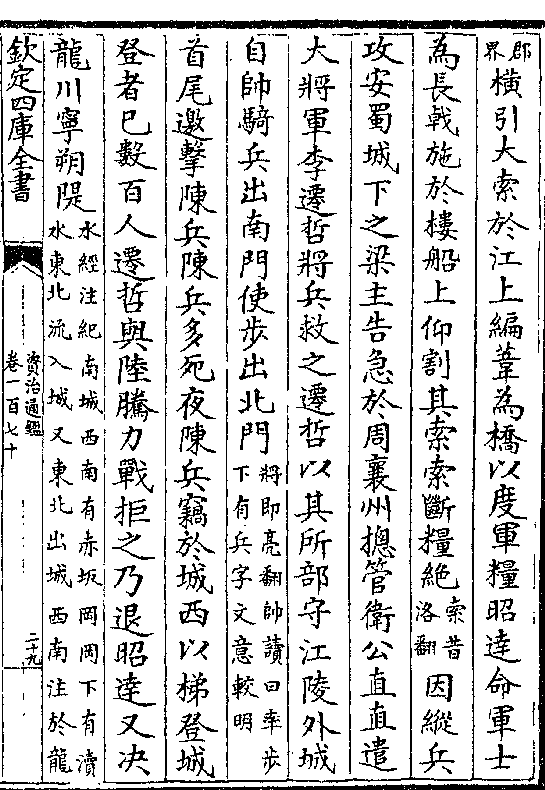 郡
界
橫引大索於江上編葦為橋以度軍糧昭達命軍士
為長戟施於樓船上仰割其索索斷糧絶
索昔
洛翻
因縱兵
攻安蜀城下之梁主告急於周襄州摠管衛公直直遣
大將軍李遷哲將兵救之遷哲以其所部守江陵外城
自帥騎兵出南門使步出北門
將即亮翻帥讀曰率步
下有兵字文意較明
首尾邀擊陳兵陳兵多死夜陳兵竊於城西以梯登城
登者已數百人遷哲與陸騰力戰拒之乃退昭達又决
龍川寧朔隄
水經注紀南城西南有赤坂岡岡下有瀆
水東北流入城又東北出城西南注於龍
欽定四庫全書
資治通鑑
卷一百七十
二十九